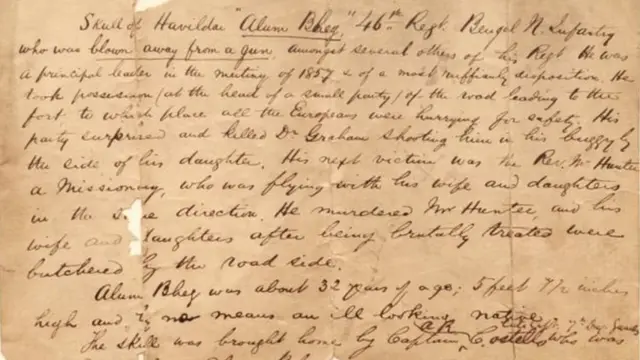 Skull of Havildar "Alum Bheg," 46th Regt. Bengal N. Infantry
who was blown away from a gun, amongst several others of his Regt. He was
a principal leader in the mutiny of 1857 & of a most ruffianly disposition. He
took possession (at the head of a small party) of the road leading to the
fort, to which place all the Europeans were hurrying for safety. His
party surprised and killed Dr. Graham shooting him in his buggy by
the side of his daughter. His next victim was the Rev. Mr. Hunter
a Missionary, who was flying with his wife and daughters
in the same direction. He murdered Mr Hunter, and his
wife and daughters after being brutally treated were
butchered by the road side.
Alum Bheg was about 32 years of age; 5 feet 7 1/2 inches
high and by no means an ill looking native
The skull was brought home by Captain (AR) Costello 7th Drag. Guards, who was